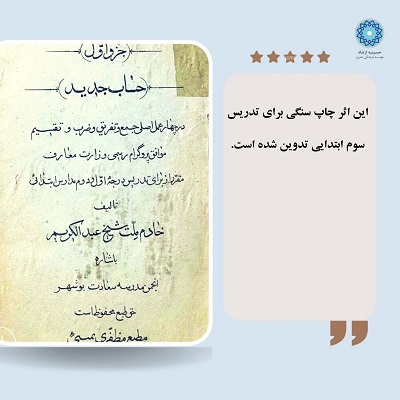 حسینیه ارشاد
جزو اول
حساب جدید
در چهار عمل اصلی جمع و تفریق و ضرب و تقسیم
موافق پروگرام رسمی وزارت معارف
مقرر از برای تدریس درجهٔ اول و دوم مدارس ابتدائی
تالیف
خادم ملت شیخ عبدالکریم
باشاره
انجمن مدرسه سعادت بوشهر
حق طبع محفوظ است
مطبع مظفری بمبئی
این اثر چاپ سنگی برای تدریس
سوم ابتدایی تدوین شده است.